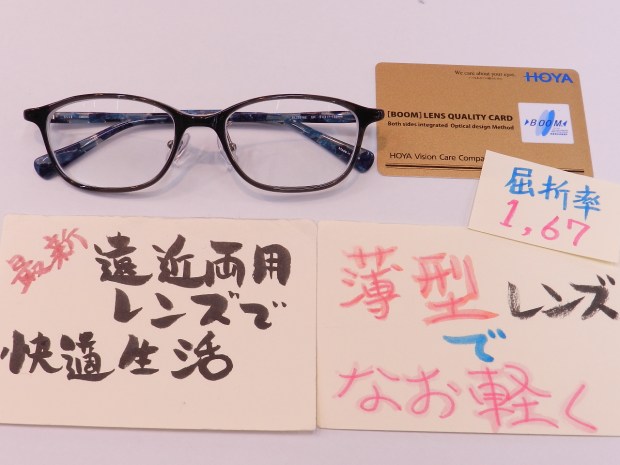 We care about your eyes.
HOYA
[BOOM] LENS QUALITY CARD
Both sides integrated Optical design Method
BOOM
HOYA Vision Care Compa
屈折率
1,67
最新
遠近両用
レンズで
快適生活
薄型レンズ
で
なお軽く